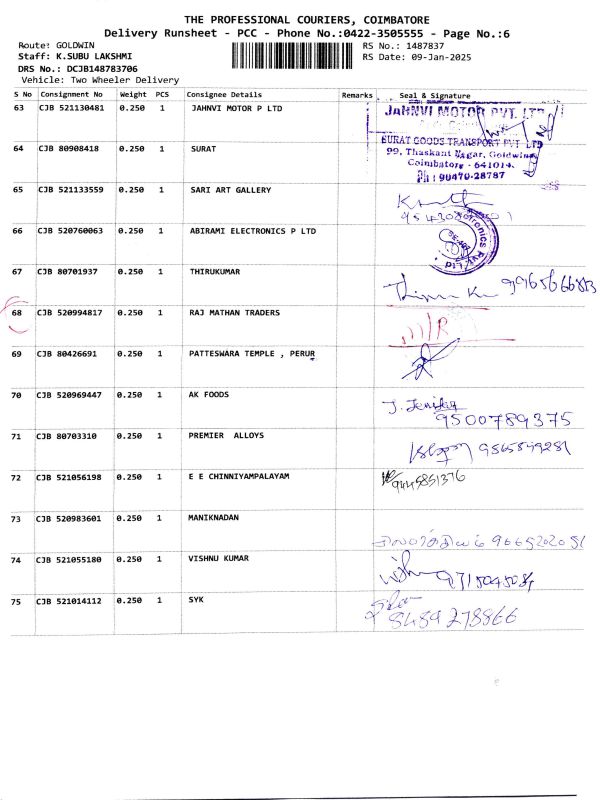 THE PROFESSIONAL COURIERS, COIMBATORE
Delivery Runsheet - PCC - Phone No.:0422-3505555 - Page No.:6
Route: GOLDWIN RS No.: 1487837
Staff: K.SUBU LAKSHMI RS Date: 09-Jan-2025
DRS No.: DCJB148783706
Vehicle: Two Wheeler Delivery
S No Consignment No Weight PCS Consignee Details Remarks Seal & Signature
63 CJB 521130481 0.250 1 JAHNVI MOTOR P LTD JAHNVI MOTOR PVT. LTD
64 CJB 80908418 0.250 1 SURAT SURAT GOODS TRANSPORT PVT LTD
99, Thaskant Nagar, Goldwins
Coimbatore - 641014.
Ph : 90470-28787
65 CJB 521133559 0.250 1 SARI ART GALLERY
66 CJB 520760063 0.250 1 ABIRAMI ELECTRONICS P LTD
67 CJB 80701937 0.250 1 THIRUKUMAR
68 CJB 520994817 0.250 1 RAJ MATHAN TRADERS
69 CJB 80426691 0.250 1 PATTESWARA TEMPLE , PERUR
70 CJB 520969447 0.250 1 AK FOODS J. Jenifer
9500789375
71 CJB 80703310 0.250 1 PREMIER ALLOYS
72 CJB 521056198 0.250 1 E E CHINNIYAMPALAYAM 9445851376
73 CJB 520983601 0.250 1 MANIKNADAN
74 CJB 521055180 0.250 1 VISHNU KUMAR
75 CJB 521014112 0.250 1 SYK
8489278866